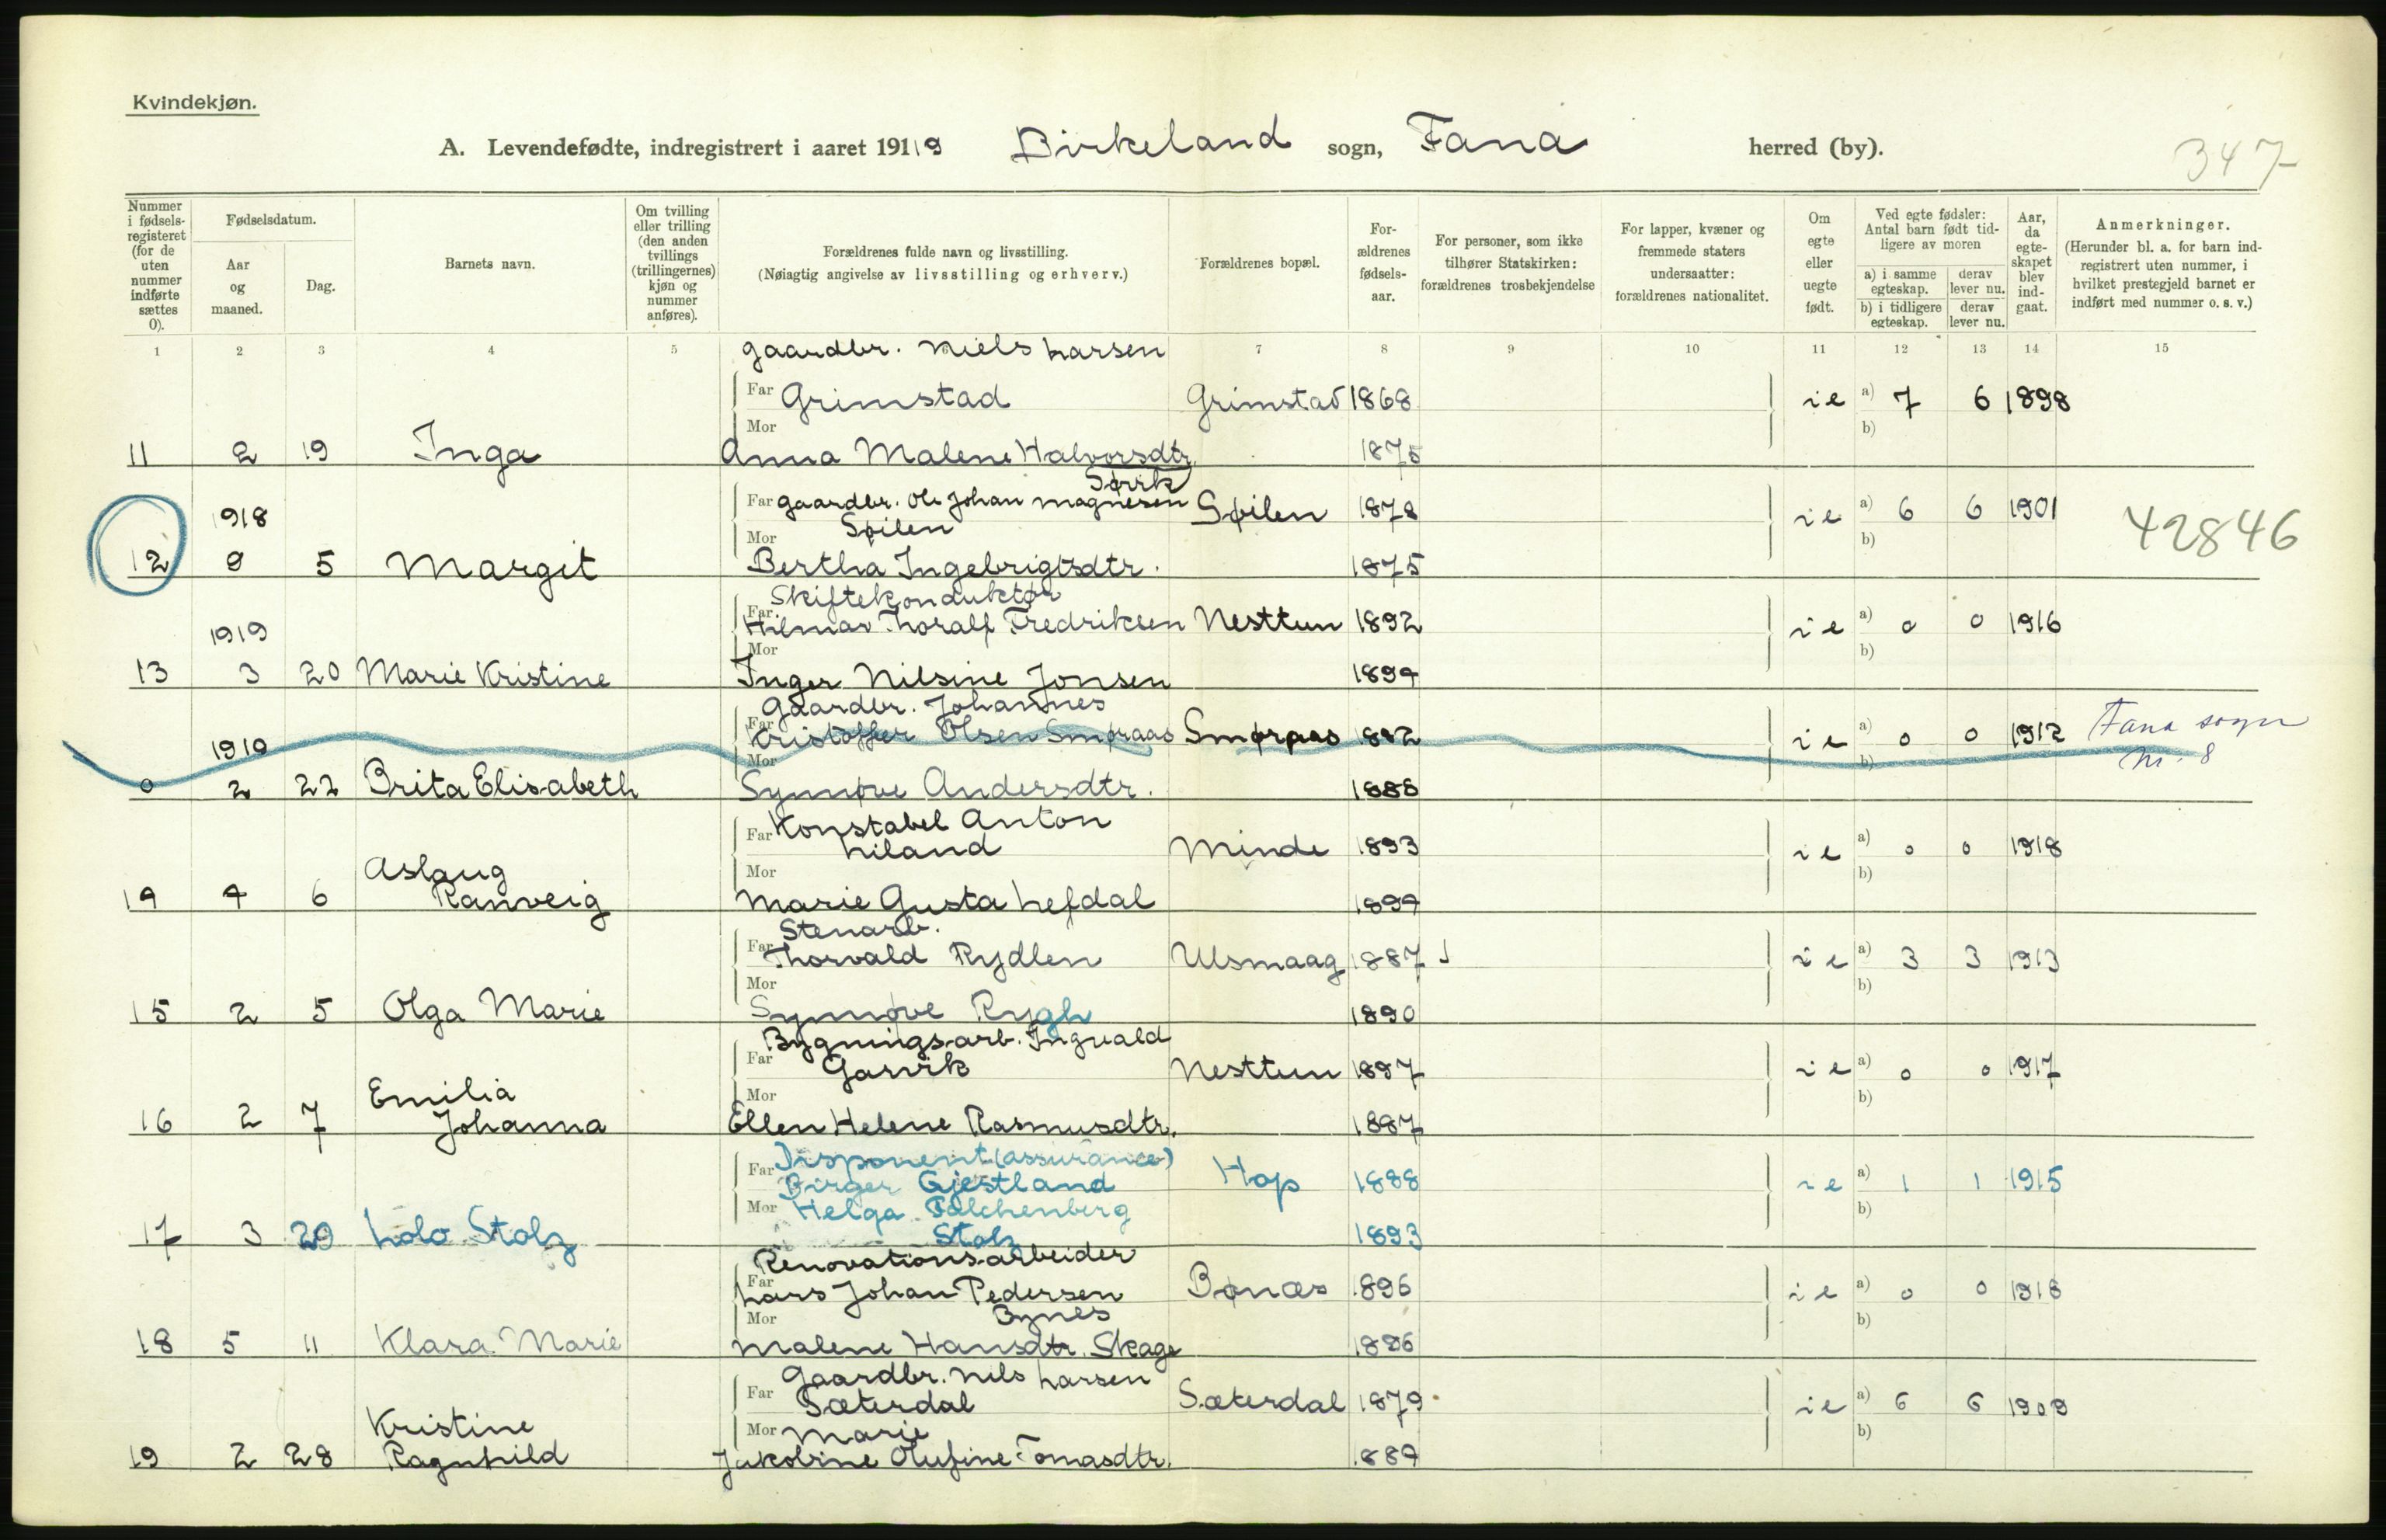 Kvindekjøn.
A. Levendefødte, indregistrert i aaret 1919 Birkeland sogn, Fana herred (by).
347
Nummer i fødsels-registeret (for de uten nummer indførte sættes 0).
Fødselsdatum.
Aar og maaned.
Dag.
Barnets navn.
Om tvilling eller trilling (den anden tvillings (trillingernes) kjøn og nummer anføres).
Forældrenes fulde navn og livsstilling.
(Nøiagtig angivelse av livsstilling og erhverv.)
Forældrenes bopæl.
For-ældrenes fødsels-aar.
For personer, som ikke tilhører Statskirken: forældrenes trosbekjendelse
For lapper, kvæner og fremmede staters undersaatter: forældrenes nationalitet.
Om egte eller uegte født.
Ved egte fødsler: Antal barn født tid-ligere av moren
a) i samme egteskap.
derav lever nu.
b) i tidligere egteskap.
derav lever nu.
Aar, da egte-skapet blev ind-gaat.
Anmerkninger.
(Herunder bl. a. for barn ind-registrert uten nummer, i hvilket prestegjeld barnet er indført med nummer o. s. v.)
1 2 3 4 5 7 8 9 10 11 12 13 14 15
gaardbr. Niels Larsen
Far Grimstad Grimstad 1868 ie a) 7 6 1898
Mor b)
11 2 19 Inga Anna Malene Halvorsdtr. 1875
Sørvik
1918 Far gaardbr. Ole Johan Magnesen Søilen 1878 ie a) 6 6 1901 42846
Søilen
Mor b)
12 9 5 Margit Bertha Ingebrigtsdtr. 1875
Skiftekonduktør
1919 Far Hilmar Thoralf Fredriksen Nesttun 1892 ie a) 0 0 1916
Mor b)
13 3 20 Marie Kristine Inger Nilsine Jonsen 1894
Gaardbr. Johannes
1919 Far Kristoffer Olsen Smøraas Smøraas 1882 ie a) 0 0 1912 Fana sogn
Mor b) nr. 8
0 2 22 Brita Elisabeth Synnøve Andersdtr. 1888
Far Konstabel Anton
Liland Minde 1893 ie a) 0 0 1918
Mor b)
Aslaug
14 4 6 Ranveig Marie Gusta Lefdal 1894
Stenarb.
Far Thorvald Rydlen Ulsmaag 1887 ie a) 3 3 1913
Mor b)
15 2 5 Olga Marie Synnøve Rygh 1890
Bygningsarb. Ingvald
Far Garvik Nesttun 1897 ie a) 0 0 1917
Mor b)
Emilia
16 2 7 Johanna Ellen Helene Rasmusdtr. 1897
Disponent (assurance)
Far Birger Gjestland Hop 1888 ie a) 1 1 1915
Mor Helga Falchenberg b)
17 3 29 Lolo Stolz Stolz 1893
Renovationsarbeider
Far Lars Johan Pedersen Bønæs 1896 ie a) 0 0 1918
Bynes
Mor b)
18 5 11 Klara Marie Malene Hansdtr. Skage 1886
Gaardbr. Nils Larsen
Far Sæterdal Sæterdal 1879 ie a) 6 6 1909
Mor Marie b)
Kristine
19 2 28 Ragnhild Jakobine Olufine Tomasdtr. 1884